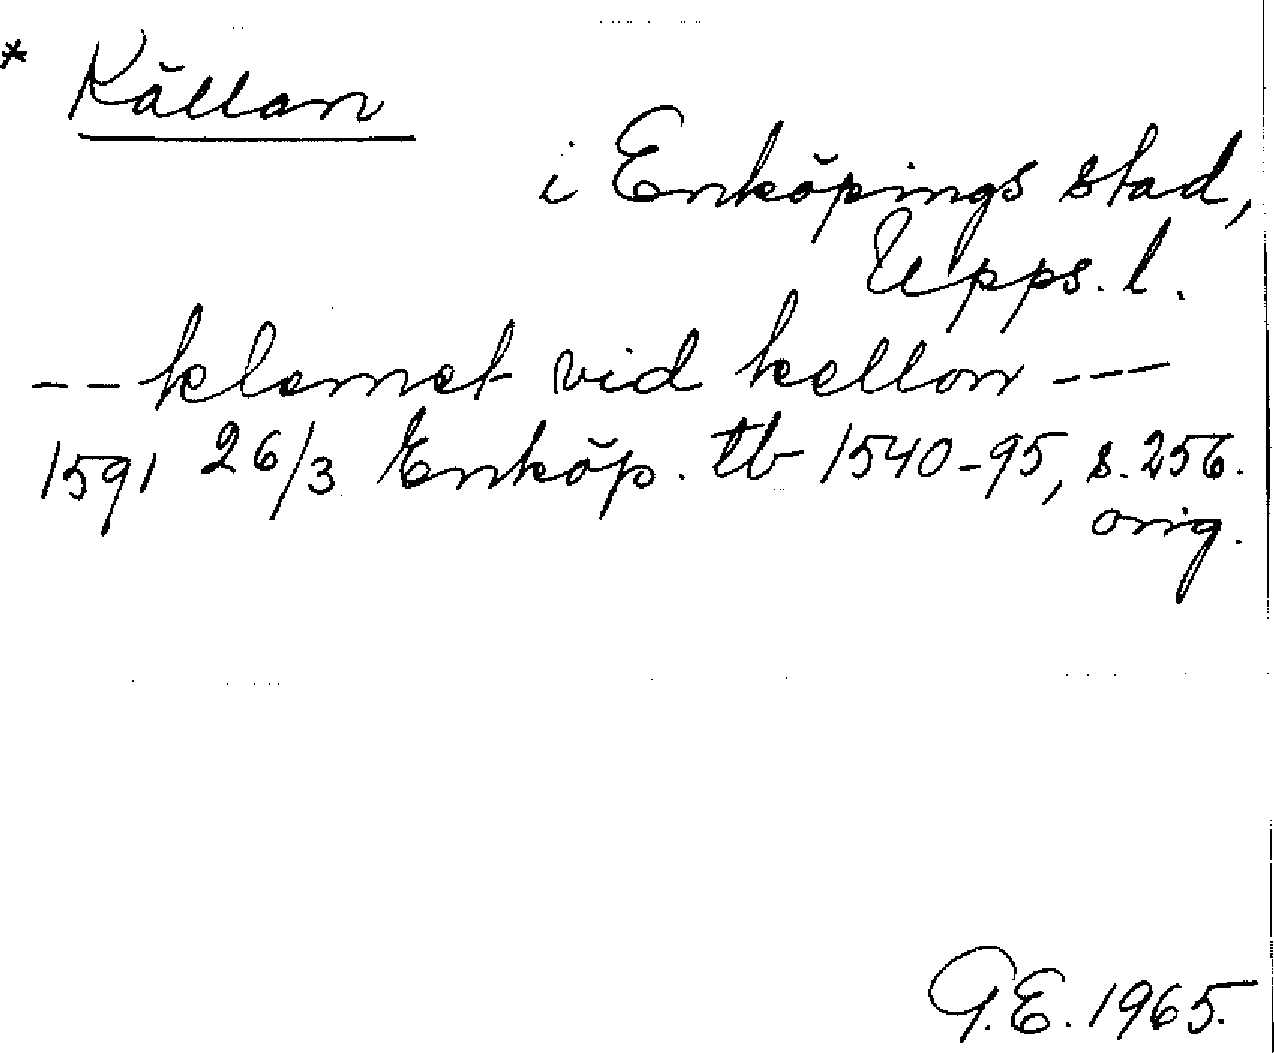 * Källan
i Enköpings stad,
Upps. l.
-- klemet vid kellon ---
1591 26/3 Enköp. tb 1540-95, s. 256.
orig.
G.E. 1965.